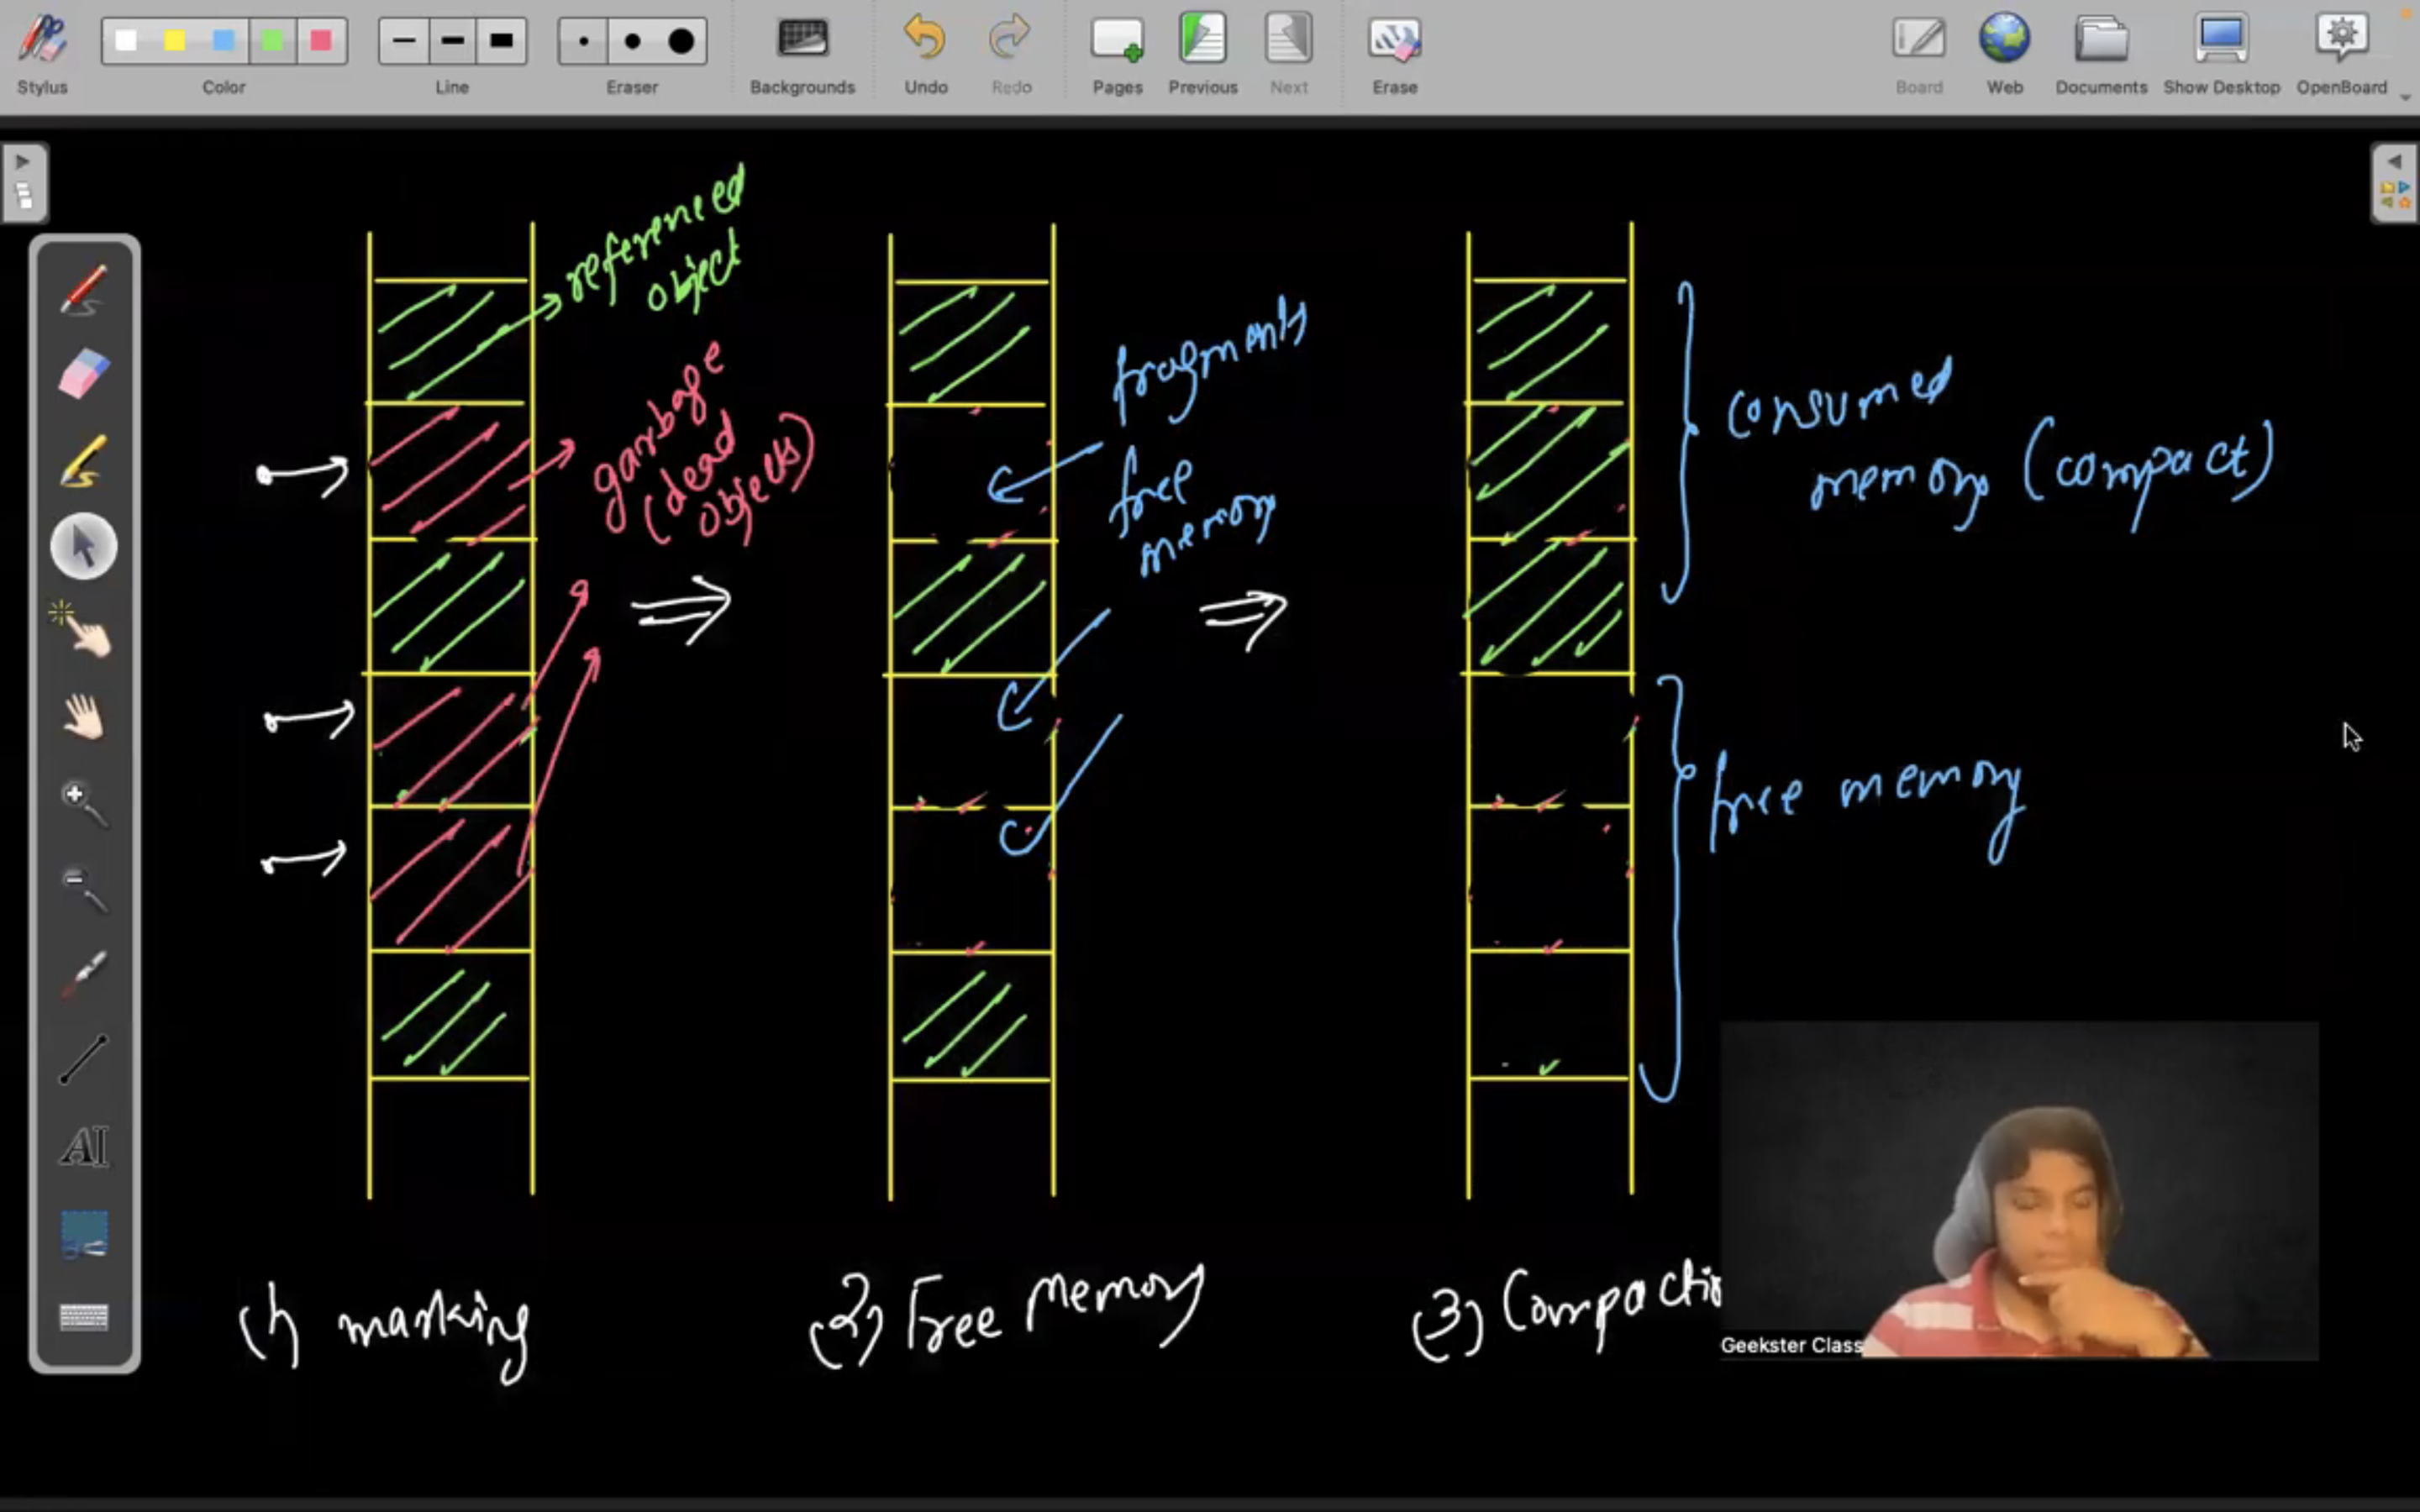 Stylus
Color
Line
Eraser
Backgrounds
Undo
Redo
Pages
Previous
Next
Erase
Board
Web
Documents
Show Desktop
OpenBoard
referenced
object
garbage
(dead
objects)
fragments
free
memory
consumed
memory (compact)
free memory
(1) marking
(2) Free Memory
(3) Compactio
AI
Geekster Class